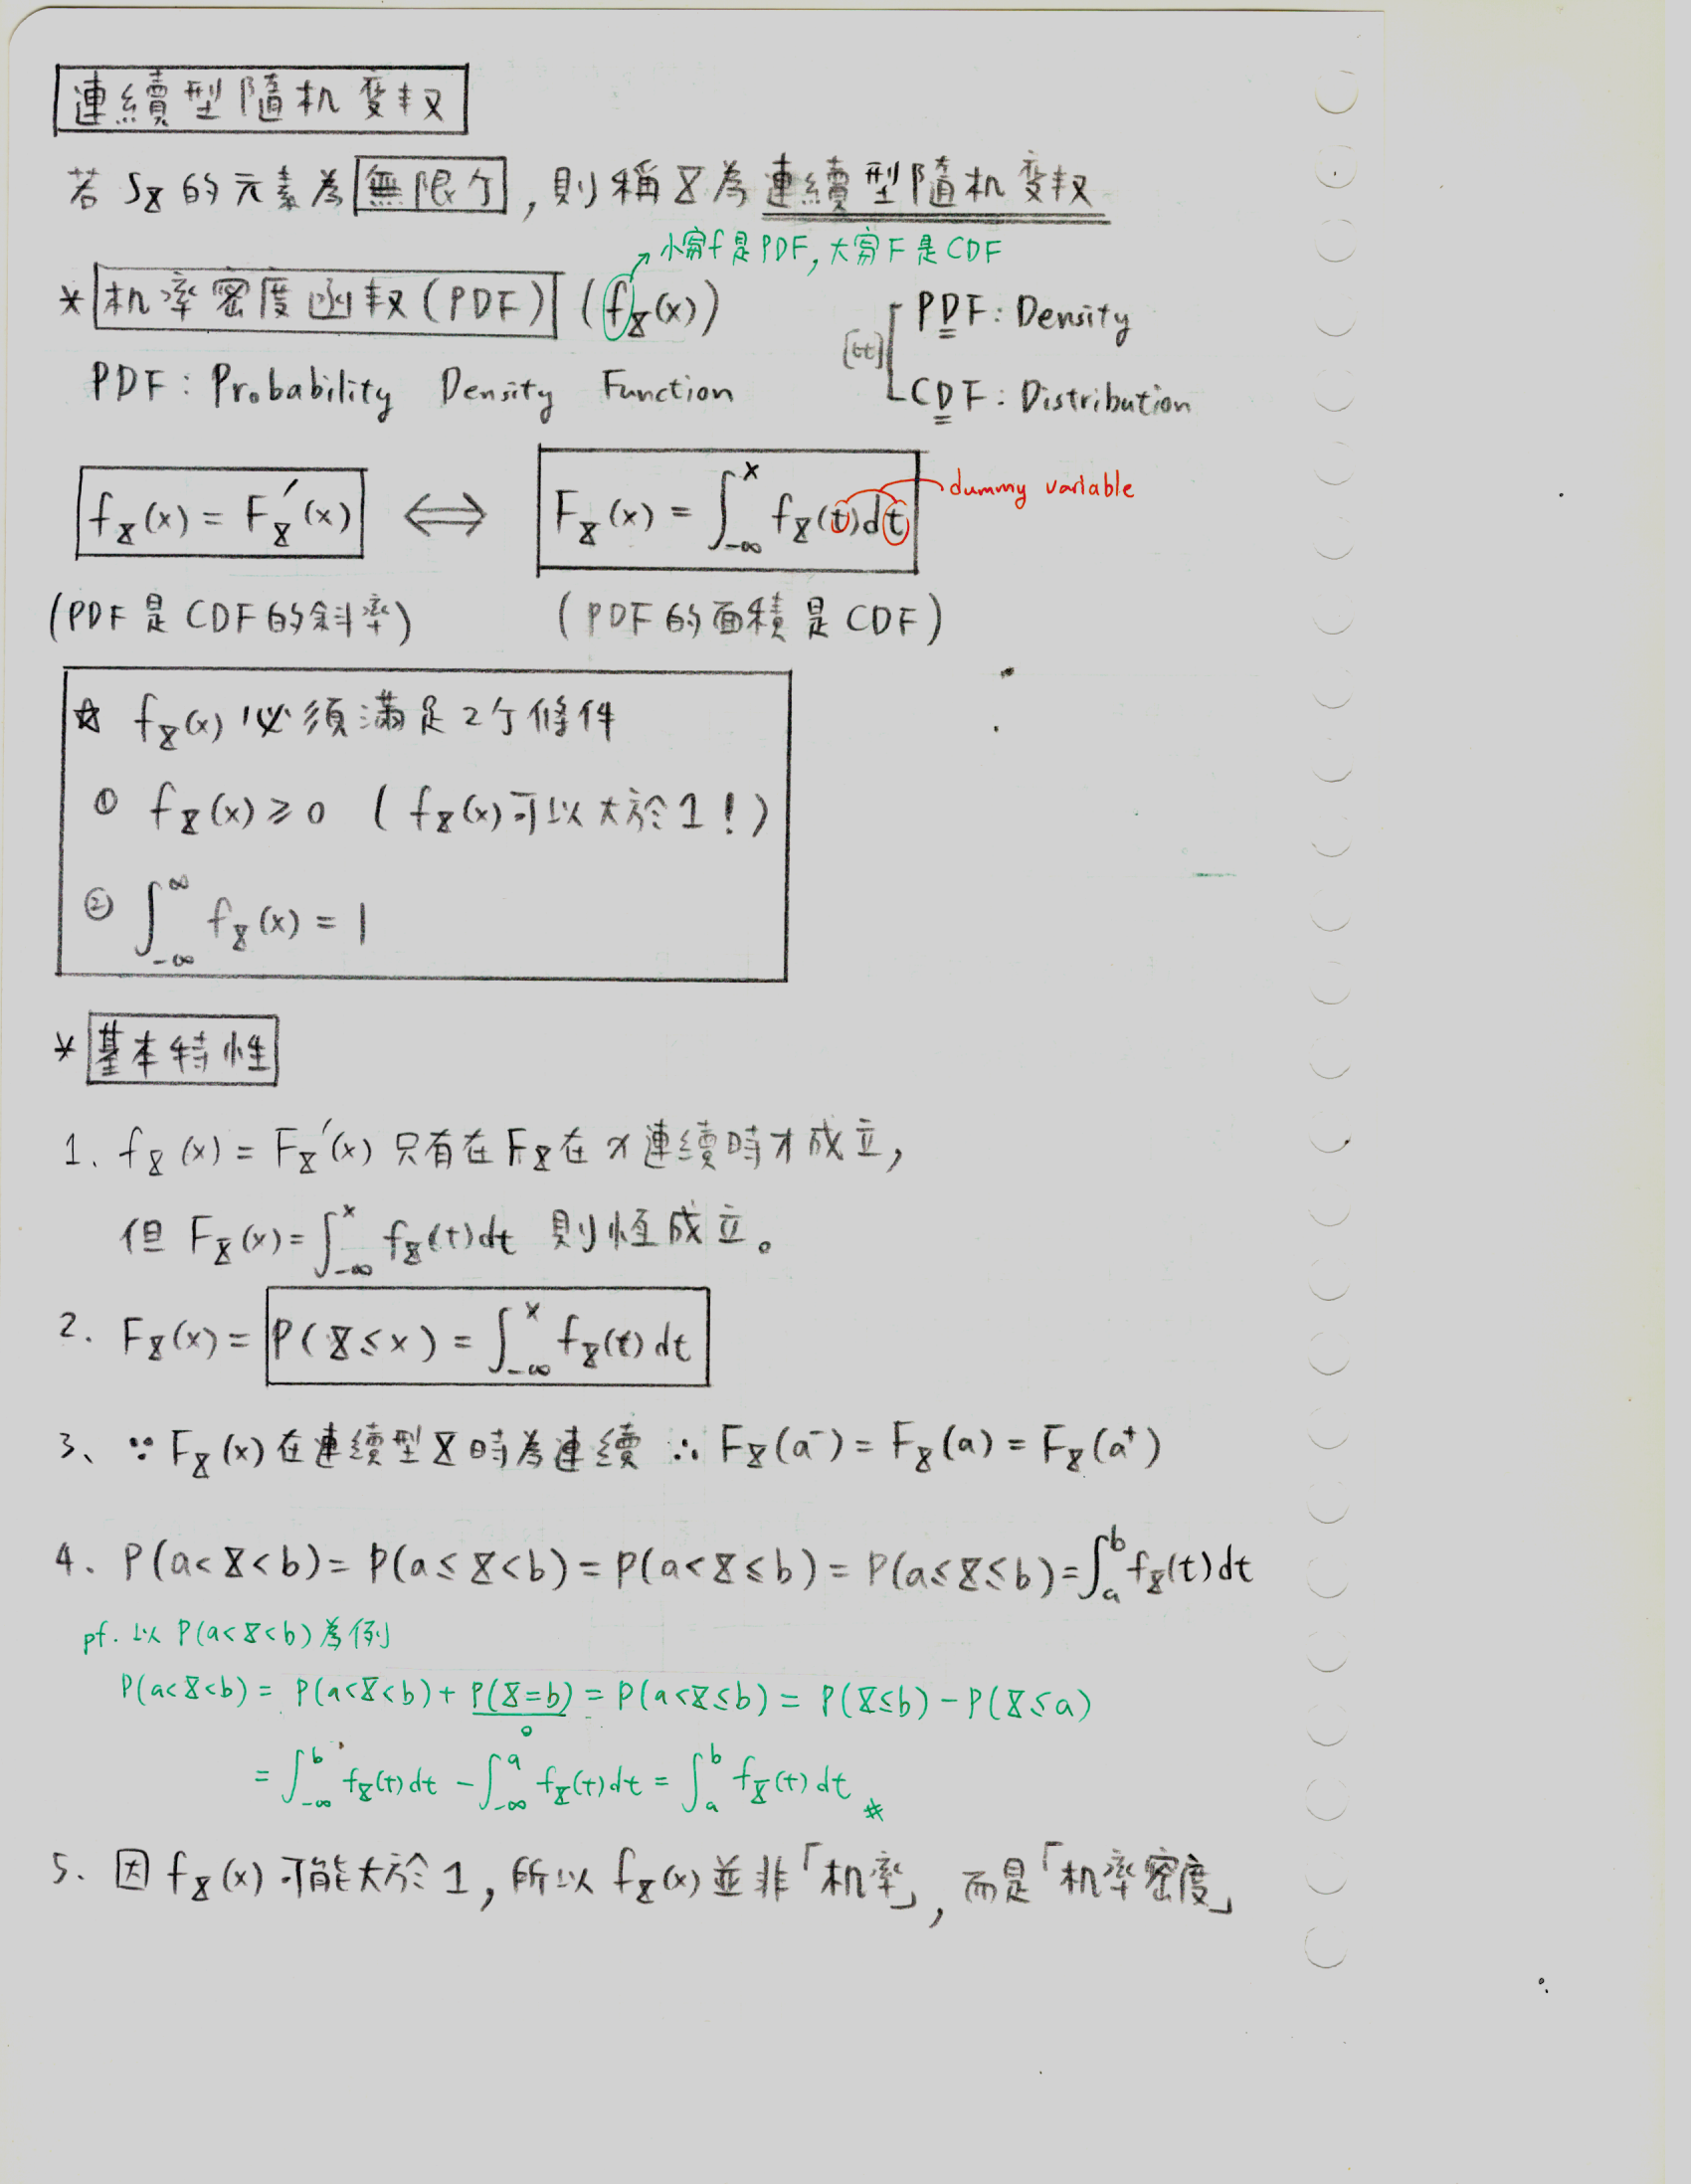 連續型隨机变杸
若 SX 的元素為無限个, 則稱 X 為連續型隨机变杸
小寫f是PDF, 大寫F是CDF
* 机率密度函杸(PDF) (fX(x))
PDF: Probability Density Function
[比] PDF: Density
CDF: Distribution
fX(x) = FX′(x) ⟺ FX(x) = ∫_{-∞}^{x} fX(t)dt dummy variable
(PDF是CDF的斜率) (PDF的面積是CDF)
☆ fX(x) 必須滿足2个條件
① fX(x) ≥ 0 (fX(x)可以大於1!)
② ∫_{-∞}^{∞} fX(x) = 1
* 基本特性
1. fX(x) = FX′(x) 只有在FX在x連續時才成立,
但 FX(x) = ∫_{-∞}^{x} fX(t)dt 則恆成立。
2. FX(x) = P(X ≤ x) = ∫_{-∞}^{x} fX(t)dt
3、∵ FX(x)在連續型X時為連續 ∴ FX(a⁻) = FX(a) = FX(a⁺)
4. P(a<X<b) = P(a≤X<b) = P(a<X≤b) = P(a≤X≤b) = ∫_{a}^{b} fX(t)dt
pf. 以 P(a<X<b) 為例
P(a<X<b) = P(a<X<b) + P(X=b) = P(a<X≤b) = P(X≤b) − P(X≤a)
0
= ∫_{-∞}^{b} fX(t)dt − ∫_{-∞}^{a} fX(t)dt = ∫_{a}^{b} fX(t)dt #
5. 因 fX(x) 可能大於1, 所以 fX(x) 並非「机率」, 而是「机率密度」